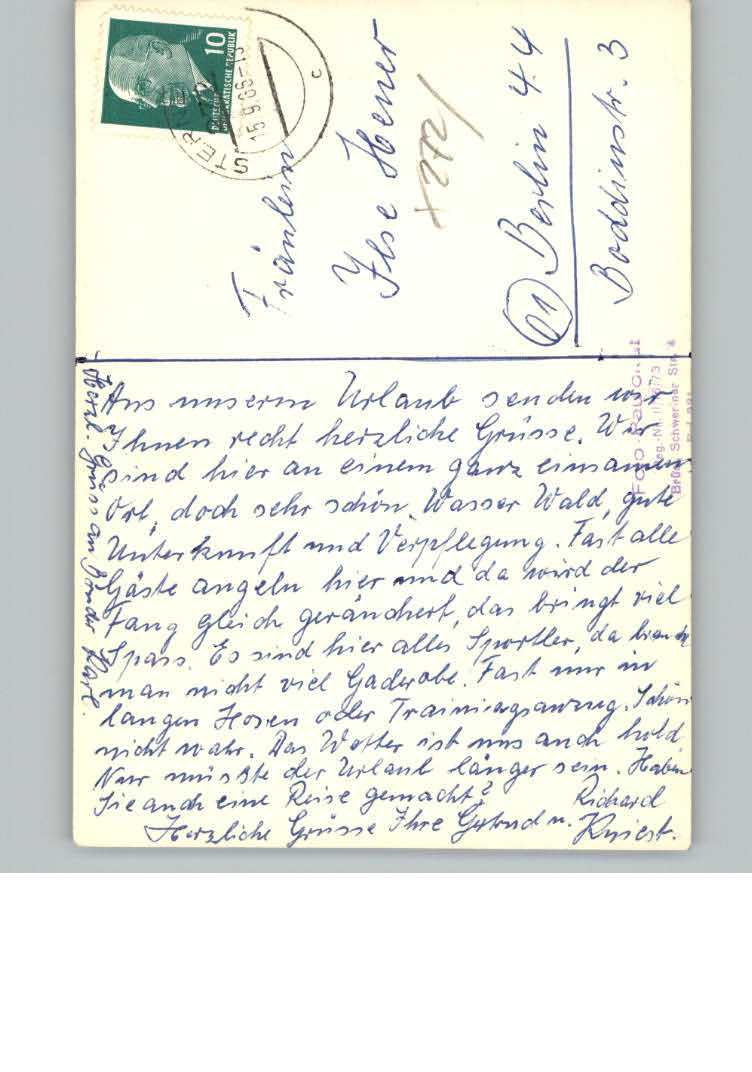 10
DEUTSCHE
DEMOKRATISCHE REPUBLIK
15.9.66-15
c
Fräulein
Ilse Hener
+ 272/
(01) Berlin 44
Boddinstr. 3
Foto
Reg.-Nr. II/16/73
Brüel, Schweriner Str. 4
Aus unserm Urlaub senden wir
Ihnen recht herzliche Grüsse. Wir
sind hier an einem ganz einsamen
Ort, doch sehr schön. Wasser Wald, gute
Unterkunft und Verpflegung. Fast alle
Gäste angeln hier und da wird der
Fang gleich geräuchert, das bringt viel
Spass. Es sind hier alles Sportler, da braucht
man nicht viel Gaderobe. Fast nur in
langen Hosen oder Trainingsanzug. Schön
nicht wahr. Das Wetter ist uns auch hold
Nur müsste der Urlaub länger sein. Haben
Sie auch eine Reise gemacht?
Herzliche Grüsse Ihre Gertrud u. Richard
Kniest.
Herzl. Grüss an Bruder Karl.